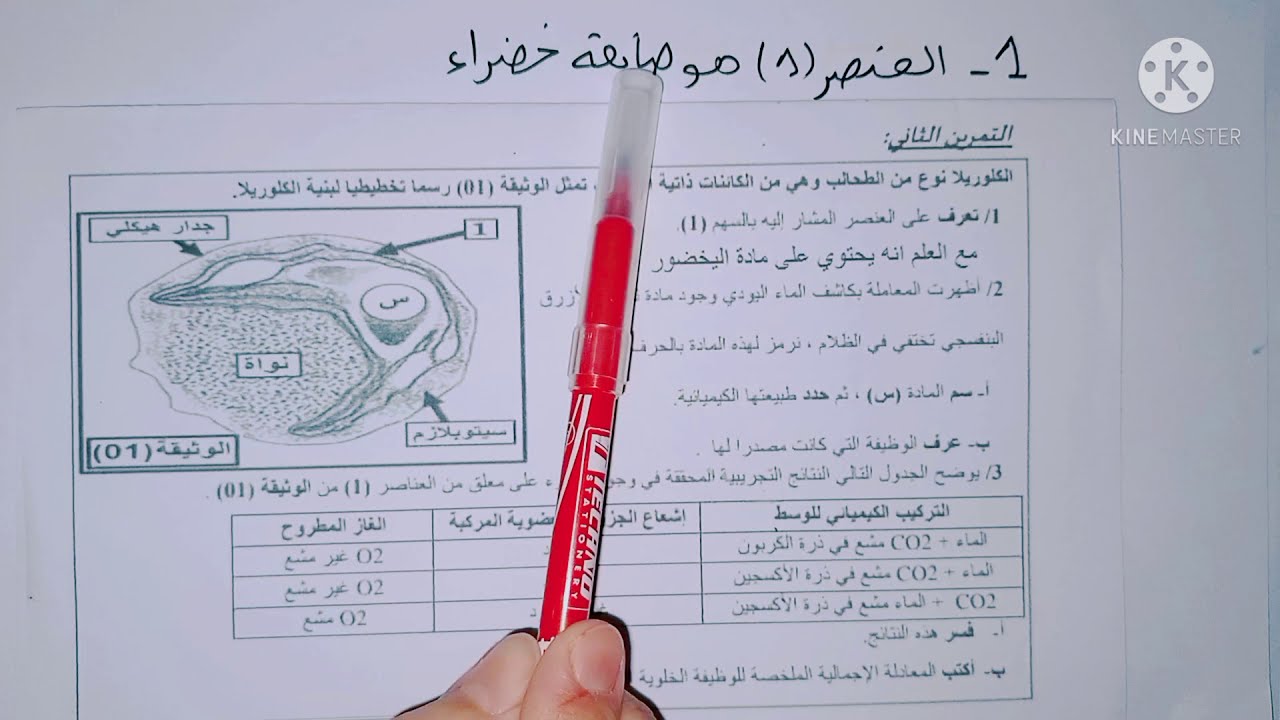 1- العنصر (1) هو صانعة خضراء
KINEMASTER
التمرين الثاني:
الكلوريلا نوع من الطحالب وهي من الكائنات ذاتية تمثل الوثيقة (01) رسما تخطيطيا لبنية الكلوريلا.
1/ تعرف على العنصر المشار إليه بالسهم (1).
مع العلم انه يحتوي على مادة اليخضور
2/ أظهرت المعاملة بكاشف الماء اليودي وجود مادة
البنفسجي تختفي في الظلام ، نرمز لهذه المادة بالحرف
أ- سم المادة (س) ، ثم حدد طبيعتها الكيميائية.
ب- عرف الوظيفة التي كانت مصدرا لها .
جدار هيكلي
1
س
نواة
سيتوبلازم
الوثيقة (01)
3/ يوضح الجدول التالي النتائج التجريبية المحققة في على معلق من العناصر (1) من الوثيقة (01) .
التركيب الكيميائي للوسط إشعاع المركبة الغاز المطروح
الماء + CO2 مشع في ذرة الكربون O2 غير مشع
الماء + CO2 مشع في ذرة الأكسجين O2 غير مشع
CO2 + الماء مشع في ذرة الأكسجين O2 مشع
أ- فسر هذه النتائج.
ب- أكتب المعادلة الإجمالية الملخصة للوظيفة الخلوية
TECHNO
STATIONERY